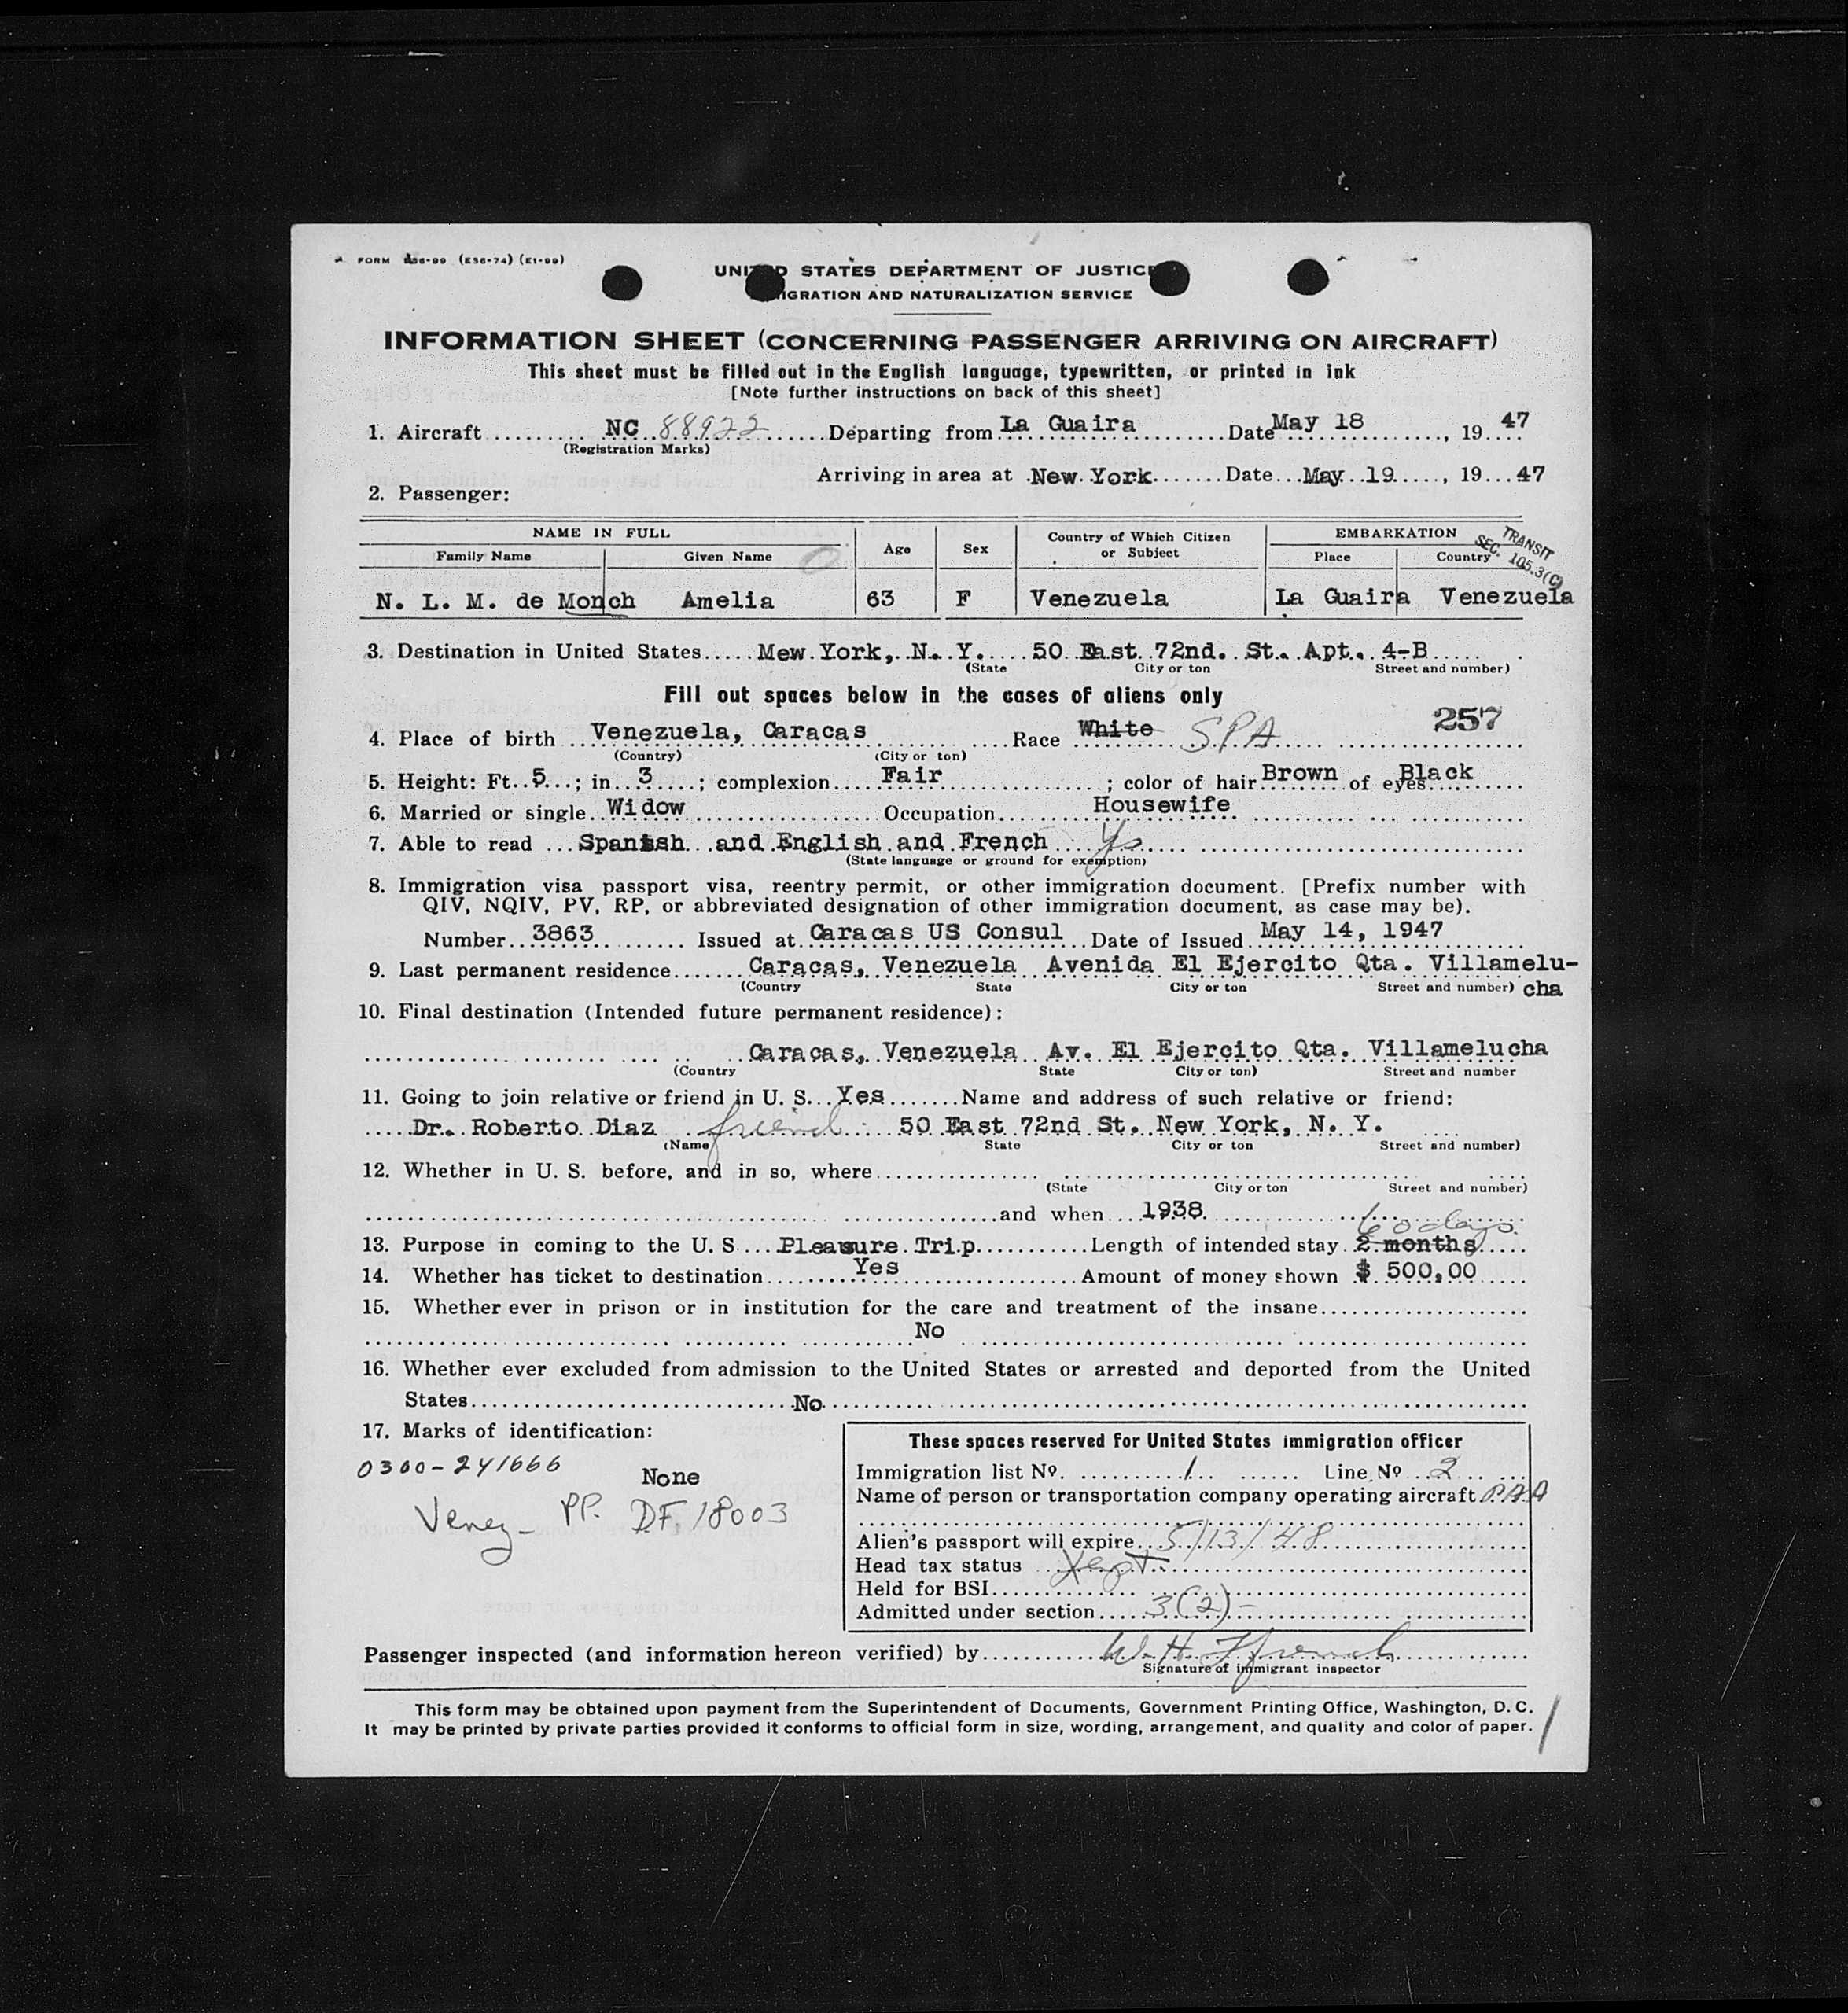 FORM 636-99 (E36-74) (E1-99)
UNITED STATES DEPARTMENT OF JUSTICE
IGRATION AND NATURALIZATION SERVICE
INFORMATION SHEET (CONCERNING PASSENGER ARRIVING ON AIRCRAFT)
This sheet must be filled out in the English language, typewritten, or printed in ink
[Note further instructions on back of this sheet]
1. Aircraft NC 88922 Departing from La Guaira Date May 18, 19 47
(Registration Marks)
Arriving in area at New York Date May 19, 19 47
2. Passenger:
NAME IN FULL Age Sex Country of Which Citizen or Subject EMBARKATION
Family Name Given Name Place Country
TRANSIT
SEC. 105.3(C)
N. L. M. de Monch Amelia 63 F Venezuela La Guaira Venezuela
3. Destination in United States Mew York, N. Y. 50 East 72nd. St. Apt. 4-B
(State City or ton Street and number)
Fill out spaces below in the cases of aliens only
257
4. Place of birth Venezuela, Caracas Race White SPA
(Country) (City or ton)
5. Height: Ft. 5; in. 3; complexion Fair; color of hair Brown of eyes Black
6. Married or single Widow Occupation Housewife
7. Able to read Spanish and English and French Yes
(State language or ground for exemption)
8. Immigration visa passport visa, reentry permit, or other immigration document. [Prefix number with
QIV, NQIV, PV, RP, or abbreviated designation of other immigration document, as case may be).
Number 3863 Issued at Caracas US Consul Date of Issued May 14, 1947
9. Last permanent residence Caracas, Venezuela Avenida El Ejercito Qta. Villamelu-
(Country State City or ton Street and number) cha
10. Final destination (Intended future permanent residence):
Caracas, Venezuela Av. El Ejercito Qta. Villamelucha
(Country State City or ton) Street and number
11. Going to join relative or friend in U. S. Yes Name and address of such relative or friend:
Dr. Roberto Diaz friend 50 East 72nd St. New York, N. Y.
(Name State City or ton Street and number)
12. Whether in U. S. before, and in so, where
(State City or ton Street and number)
and when 1938
60 days
13. Purpose in coming to the U. S Pleasure Trip Length of intended stay 2 months
14. Whether has ticket to destination Yes Amount of money shown $ 500,00
15. Whether ever in prison or in institution for the care and treatment of the insane
No
16. Whether ever excluded from admission to the United States or arrested and deported from the United
States No
17. Marks of identification:
0300-241666
None
Venez- PP. DF. 18003
These spaces reserved for United States immigration officer
Immigration list No. 1 Line No 2
Name of person or transportation company operating aircraft PAA
Alien's passport will expire 5/13/48
Head tax status
Held for BSI
Admitted under section 3(2)-
Passenger inspected (and information hereon verified) by W. H. Ffrench
Signature of immigrant inspector
This form may be obtained upon payment from the Superintendent of Documents, Government Printing Office, Washington, D. C.
It may be printed by private parties provided it conforms to official form in size, wording, arrangement, and quality and color of paper.